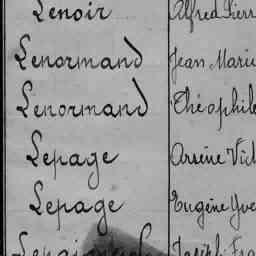 Lenoir Alfred Pierr
Lenormand Jean Marie
Lenormand Théophile
Lepage Arsène Vict
Lepage Eugène Yve
Joseph Fra